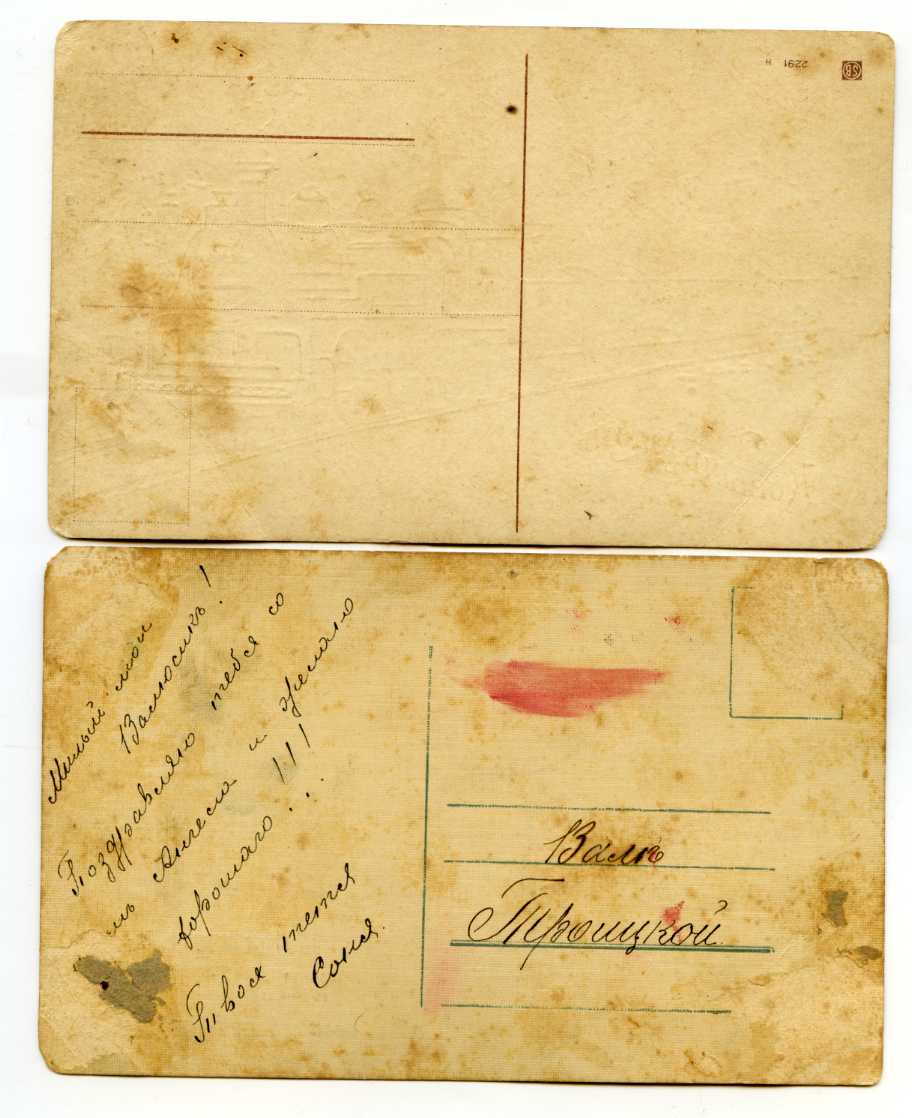 2291 н
SB
Милый мой
Валюсикъ!
Поздравляю тебя со
мъ Ангела и желаю
хорошаго!!!...
Твоя тетя
Соня.
Валѣ
Троицкой